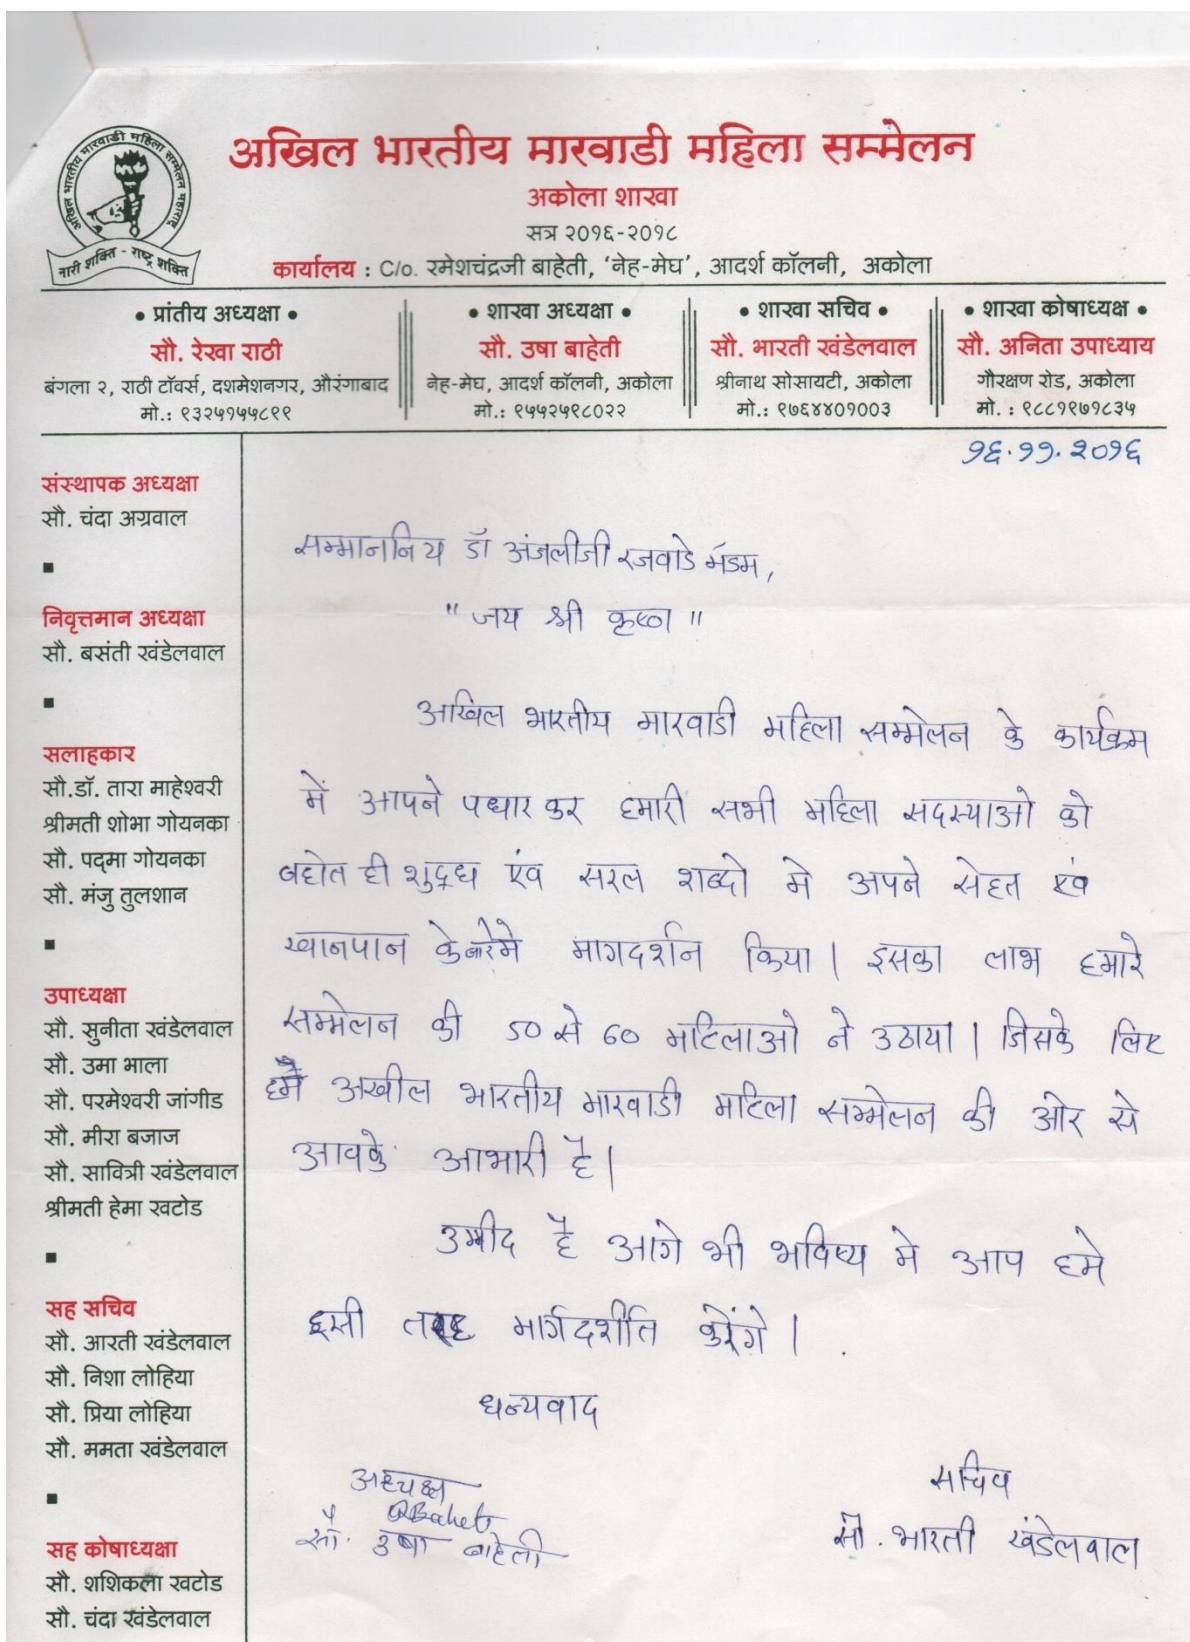 अखिल भारतीय मारवाडी महिला सम्मेलन महाराष्ट्र
नारी शक्ति - राष्ट्र शक्ति
अखिल भारतीय मारवाडी महिला सम्मेलन
अकोला शाखा
सत्र २०१६-२०१८
कार्यालय : C/o. रमेशचंद्रजी बाहेती, 'नेह-मेघ', आदर्श कॉलनी, अकोला
• प्रांतीय अध्यक्षा •
सौ. रेखा राठी
बंगला २, राठी टॉवर्स, दशमेशनगर, औरंगाबाद
मो.: ९३२५१५५८९९
• शाखा अध्यक्षा •
सौ. उषा बाहेती
नेह-मेघ, आदर्श कॉलनी, अकोला
मो.: ९५५२५९८०२२
• शाखा सचिव •
सौ. भारती खंडेलवाल
श्रीनाथ सोसायटी, अकोला
मो.: ९७६४४०१००३
• शाखा कोषाध्यक्ष •
सौ. अनिता उपाध्याय
गौरक्षण रोड, अकोला
मो. : ९८८१९७१८३५
१६.११.२०१६
संस्थापक अध्यक्षा
सौ. चंदा अग्रवाल
निवृत्तमान अध्यक्षा
सौ. बसंती खंडेलवाल
सलाहकार
सौ.डॉ. तारा माहेश्वरी
श्रीमती शोभा गोयनका
सौ. पद्मा गोयनका
सौ. मंजु तुलशान
उपाध्यक्षा
सौ. सुनीता खंडेलवाल
सौ. उमा भाला
सौ. परमेश्वरी जांगीड
सौ. मीरा बजाज
सौ. सावित्री खंडेलवाल
श्रीमती हेमा खटोड
सह सचिव
सौ. आरती खंडेलवाल
सौ. निशा लोहिया
सौ. प्रिया लोहिया
सौ. ममता खंडेलवाल
सह कोषाध्यक्षा
सौ. शशिकला खटोड
सौ. चंदा खंडेलवाल
सम्माननिय डॉ अंजलीजी रजवाडे मॅडम,
" जय श्री कृष्ण "
अखिल भारतीय मारवाडी महिला सम्मेलन के कार्यक्रम
में आपने पधार कर हमारी सभी महिला सदस्याओ को
बहोत ही शुद्ध एंव सरल शब्दो मे अपने सेहत एंव
खानपान केबारेमे मागदर्शन किया। इसका लाभ हमारे
सम्मेलन की 50 से 60 महिलाओ ने उठाया। जिसके लिए
हमे अखील भारतीय मारवाडी महिला सम्मेलन की ओर से
आपके आभारी है।
उम्मीद है आगे भी भविष्य मे आप हमे
इसी तरह मार्गदर्शीत करेंगे।
धन्यवाद
अध्यक्ष
सौ. उषा बाहेती
सचिव
सौ. भारती खंडेलवाल